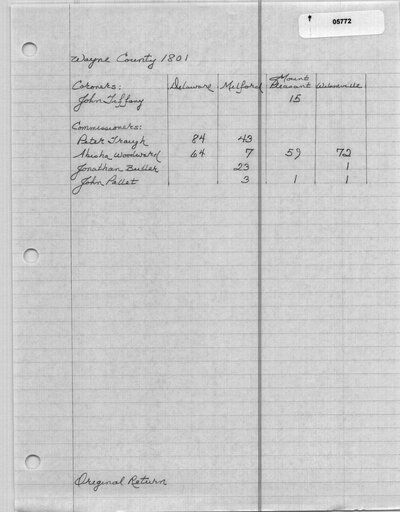 05772
Wayne County 1801
Mount
Coroners: Delaware Milford Pleasant Wilsonville
John Tiffany 15
Commissioners:
Peter Traugh 84 43
Abisha Woodward 64 7 59 72
Jonathan Butler 23 1
John Pallet 3 1 1
Original Return